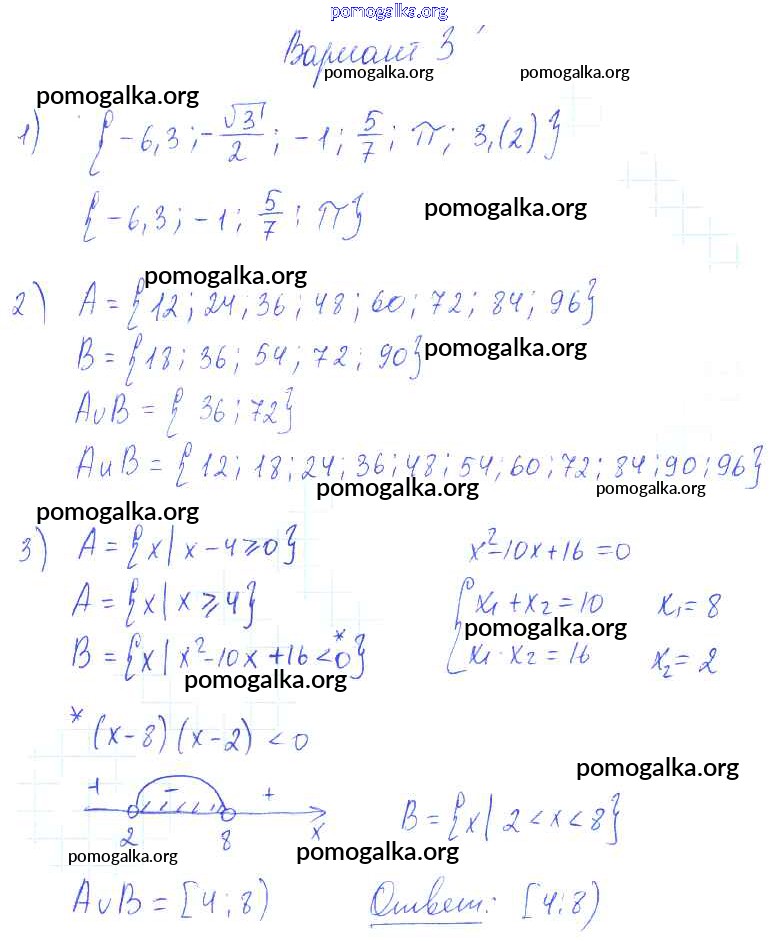 pomogalka.org
Вариант 3
pomogalka.org pomogalka.org
pomogalka.org
1) { -6,3 ; -√3/2 ; -1 ; 5/7 ; π ; 3,(2) }
{ -6,3 ; -1 ; 5/7 ; π }
pomogalka.org
pomogalka.org
2) A = { 12 ; 24 ; 36 ; 48 ; 60 ; 72 ; 84 ; 96 }
B = { 18 ; 36 ; 54 ; 72 ; 90 }
pomogalka.org
A∪B = { 36 ; 72 }
AиB = { 12 ; 18 ; 24 ; 36 ; 48 ; 54 ; 60 ; 72 ; 84 ; 90 ; 96 }
pomogalka.org pomogalka.org
pomogalka.org
3) A = { x | x - 4 ≥ 0 } x² - 10x + 16 = 0
A = { x | x ≥ 4 } { x₁ + x₂ = 10 x₁ = 8
pomogalka.org
B = { x | x² - 10x + 16 < 0* } x₁ · x₂ = 16 x₂ = 2
pomogalka.org
* (x - 8) (x - 2) < 0
pomogalka.org
+ - +
2 8 x
B = { x | 2 < x < 8 }
pomogalka.org pomogalka.org
A∪B = [4 ; 8) Ответ: [4 ; 8)